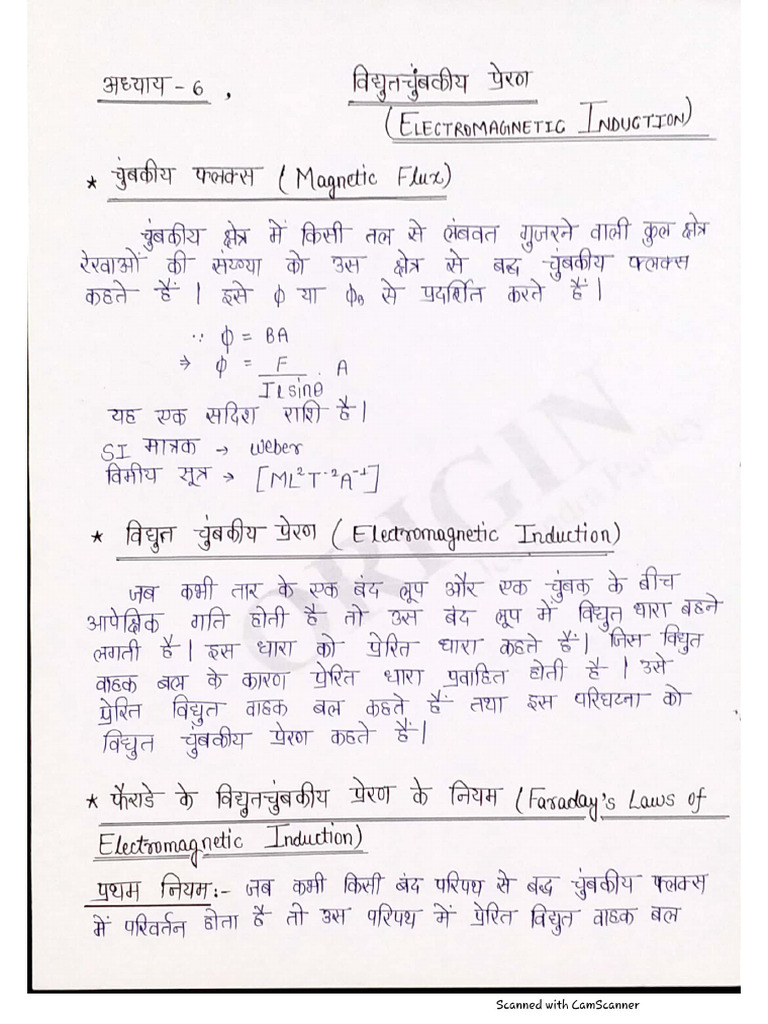 अध्याय - 6 , विद्युतचुंबकीय प्रेरण
(ELECTROMAGNETIC INDUCTION)
* चुंबकीय फ्लक्स ( Magnetic Flux)
चुंबकीय क्षेत्र में किसी तल से लंबवत गुजरने वाली कुल क्षेत्र
रेखाओं की संख्या को उस क्षेत्र से बद्ध चुंबकीय फ्लक्स
कहते हैं । इसे ϕ या ϕB से प्रदर्शित करते हैं ।
∵ ϕ = BA
⇒ ϕ = F / ILsinθ · A
यह एक सदिश राशि है ।
SI मात्रक → Weber
विमीय सूत्र → [ML²T⁻²A⁻¹]
* विद्युत चुंबकीय प्रेरण ( Electromagnetic Induction)
जब कभी तार के एक बंद लूप और एक चुंबक के बीच
आपेक्षिक गति होती है तो उस बंद लूप में विद्युत धारा बहने
लगती है । इस धारा को प्रेरित धारा कहते हैं । जिस विद्युत
वाहक बल के कारण प्रेरित धारा प्रवाहित होती है । उसे
प्रेरित विद्युत वाहक बल कहते हैं तथा इस परिघटना को
विद्युत चुंबकीय प्रेरण कहते हैं ।
* फैराडे के विद्युतचुंबकीय प्रेरण के नियम ( Faraday's Laws of
Electromagnetic Induction)
प्रथम नियम :- जब कभी किसी बंद परिपथ से बद्ध चुंबकीय फ्लक्स
में परिवर्तन होता है तो उस परिपथ में प्रेरित विद्युत वाहक बल
ORIGIN
Scanned with CamScanner